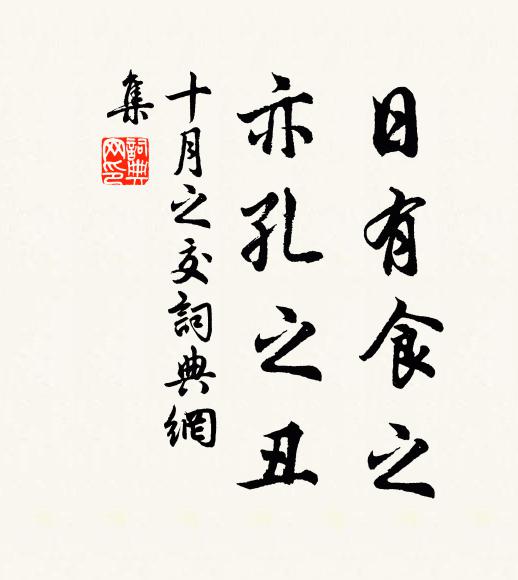 日有食之
亦孔之丑
十月之交詞典網
集
詞典
网印